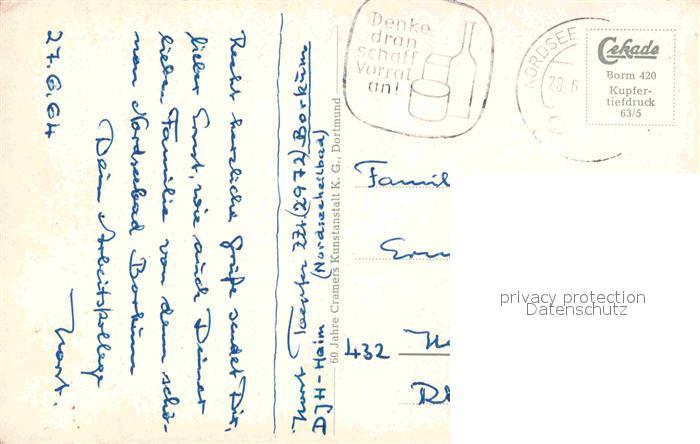 27.6.64
Recht herzliche Grüße sendet Dir,
lieber Ernst, wie auch Deiner
lieben Familie von dem schö-
nen Nordseebad Borkum
Dein Arbeitskollege
Horst.
Horst zZt. (2972) Borkum
DJH-Heim (Nordseeheilbad)
60 Jahre Cramers Kunstanstalt K. G., Dortmund
Denke
dran
schaff
Vorrat
an!
NORDSEE
28.6
Cekade
Borm 420
Kupfer-
tiefdruck
63/5
Famil
Ern
432
privacy protection
Datenschutz